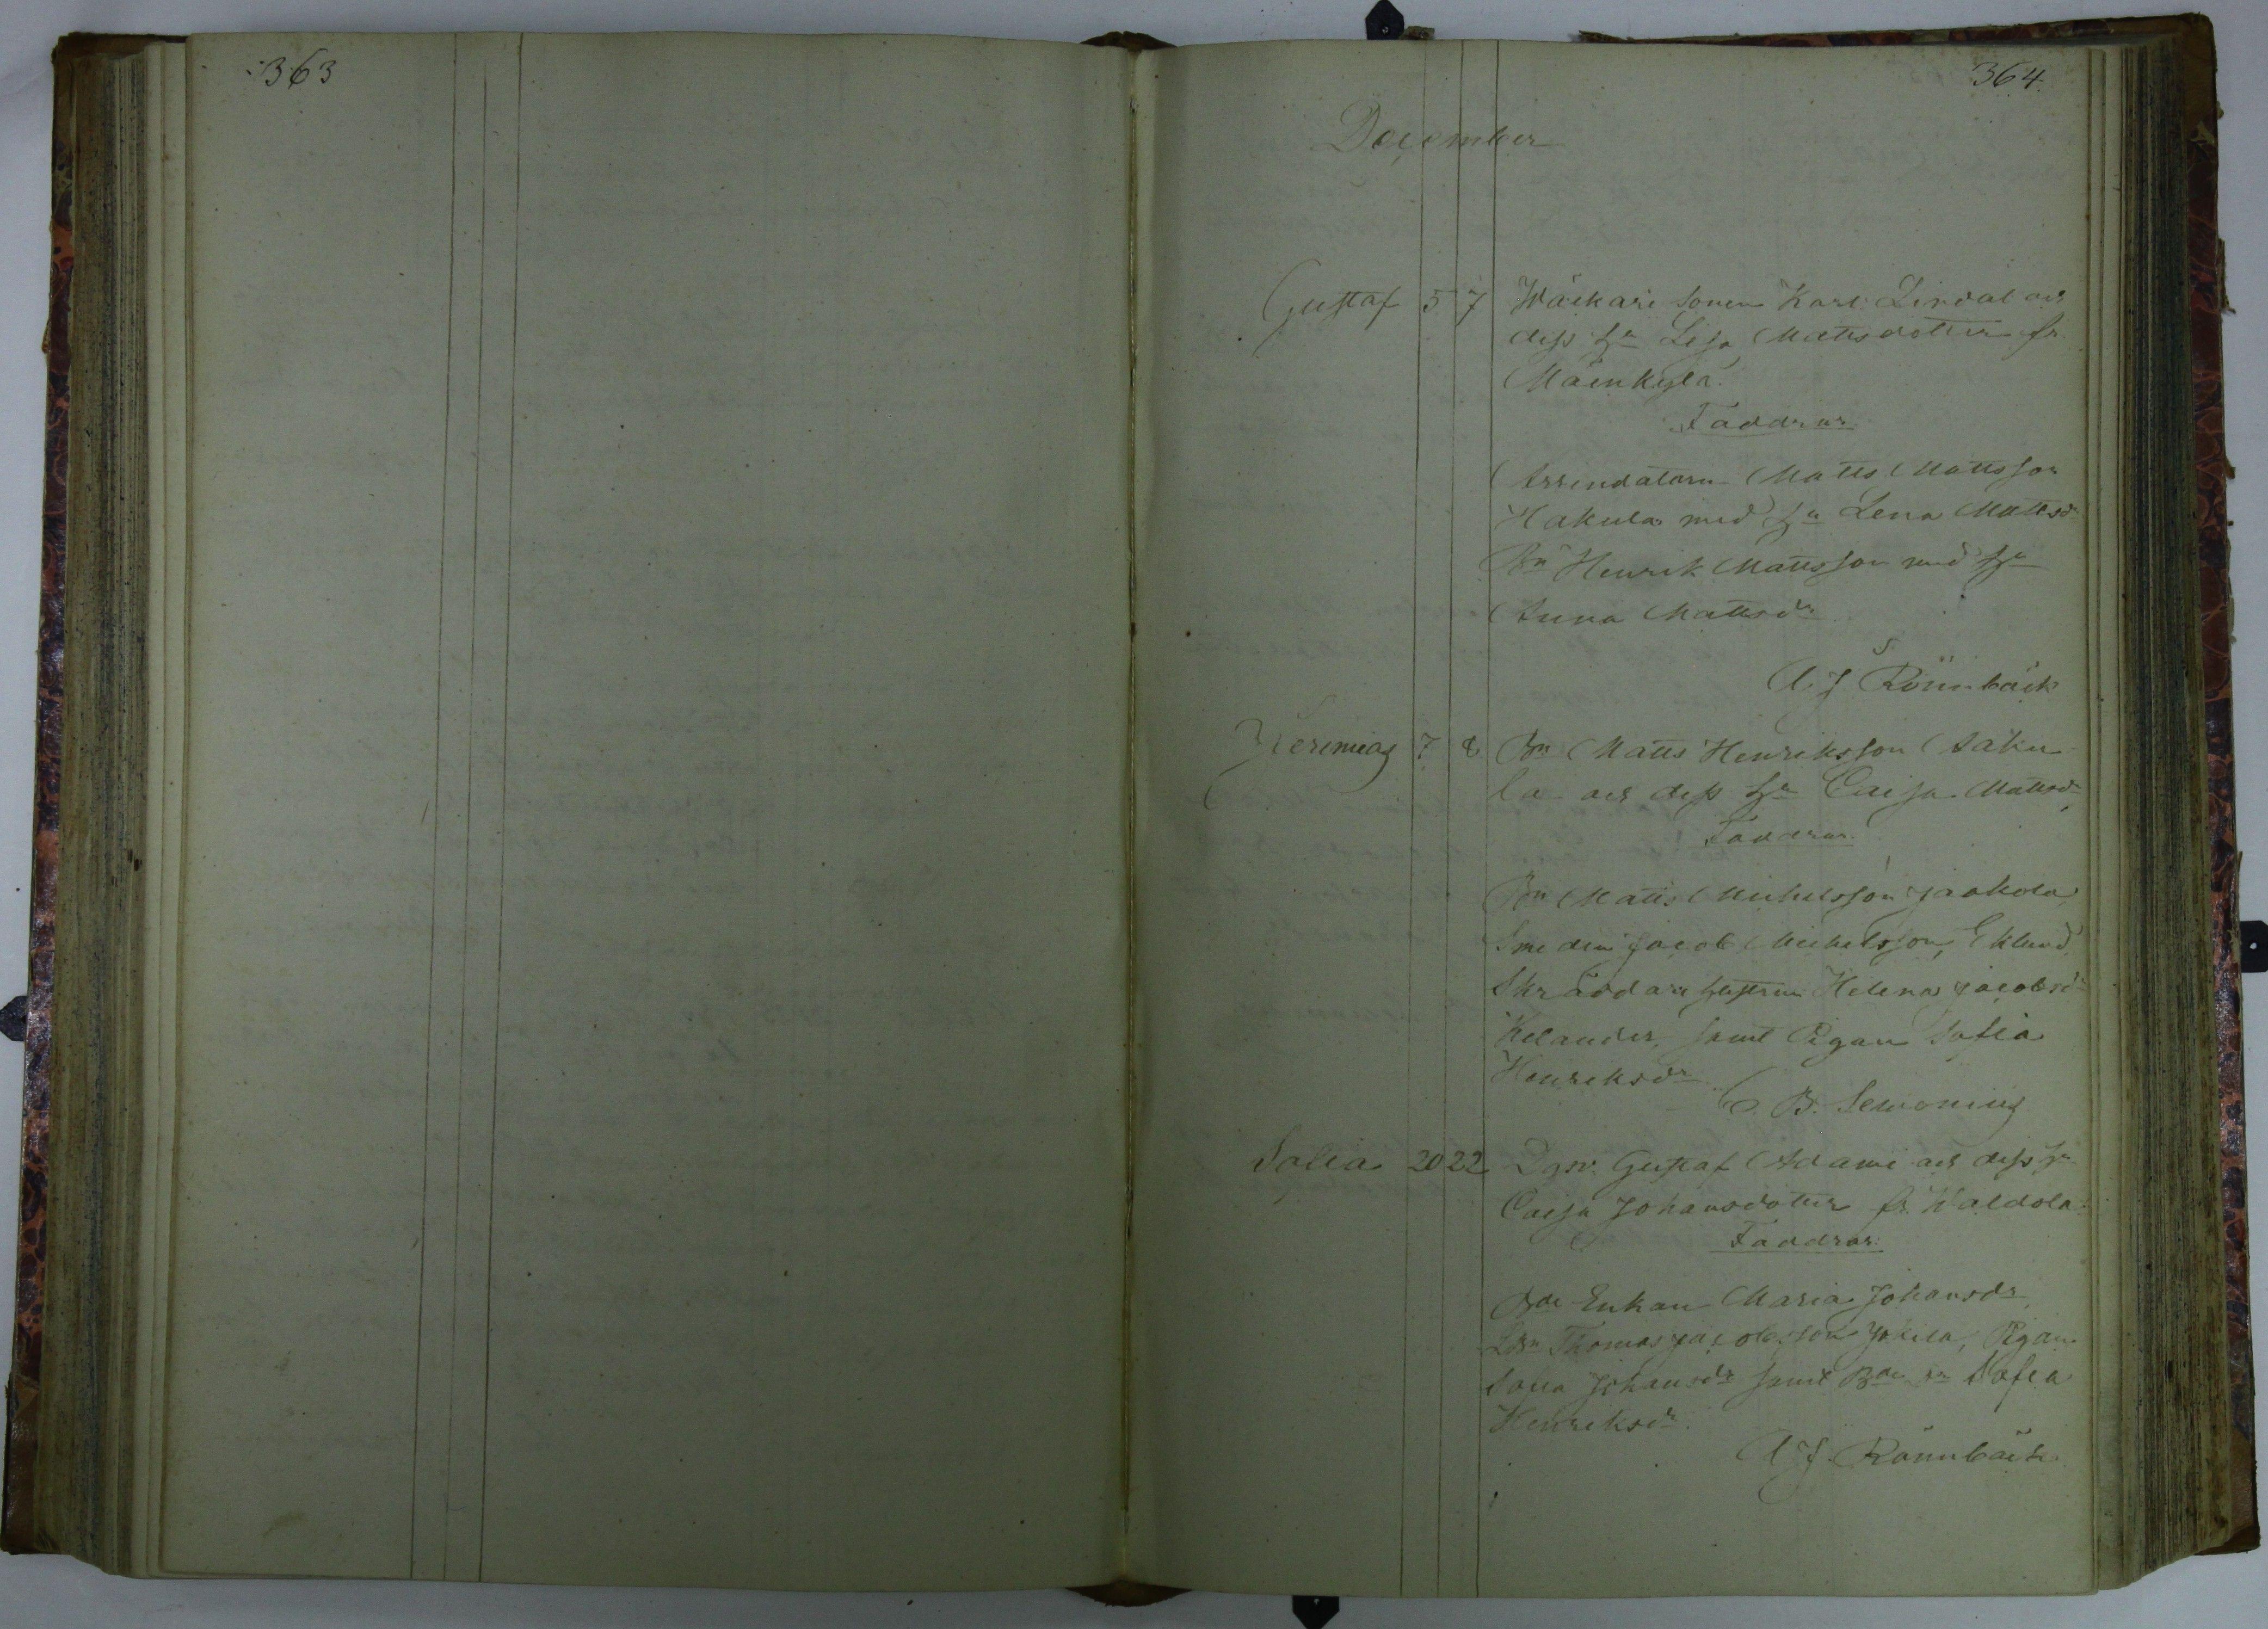 363
364
December
Gustaf 5 7 Wäckare sonen Karl Lindal och
dess hu Lisa Mattsdotter fr
Mäenkylä.
Faddrar
Arrendatorn Matts Mattsson
Hakula med hu Lena Mattsdr
Bn Henrik Mattsson med hu
Anna Mattsdr
A. J. Rönnbäck
Jeremias 7 8 Bn Matts Henriksson Saku-
la och dess hu Caisa Mattsdr
Faddrar
Bn Matts Michelsson Jaakola
Smeden Jacob Michelsson Eklund
Skräddare hustrun Helena Jacobsdr
Helander, samt Pigan Sofia
Henriksdr
B. Lemoning
Sofia 20 22 Dgsv. Gustaf Adami och dess hu
Caisa Johansdotter fr. Waldola.
Faddrar:
Bde Enkan Maria Johansdr,
Ldbn Thomas Jacobsson Jokila, Pigan
Johansdr samt Bde Sofia
Henriksdr.
A J. Rönnbäck